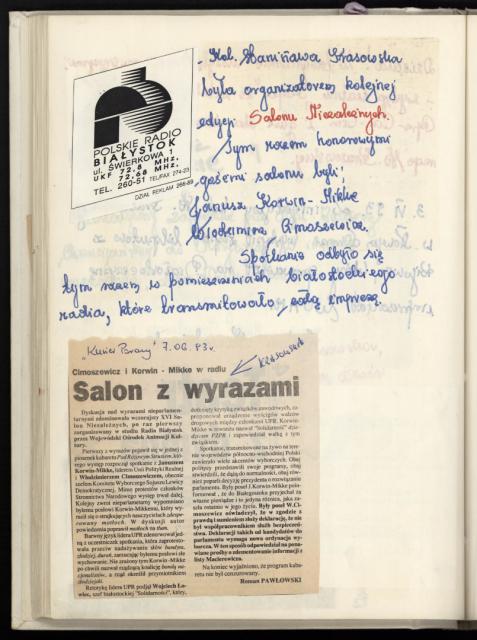 POLSKIE RADIO
BIAŁYSTOK
ul. ŚWIERKOWA 1
UKF 72,8 MHz.
72,68 MHz.
TEL. 260-51 TEL/FAX 274-23
DZIAŁ REKLAM 266-89
- Kol. Stanisława Krasowska
była organizatorem kolejnej
edycji Salonu Niezależnych.
Tym razem honorowymi
gośćmi salonu byli:
Janusz Korwin-Mikke
Włodzimierz Cimoszewicz.
Spotkanie odbyło się
tym razem w pomieszczeniach białostockiego
radia, które transmitowało całą imprezę.
„Kurier Poranny" 7.06.93r.
Cimoszewicz i Korwin - Mikke w radiu
Salon z wyrazami
Dyskusja nad wyrazami nieparlamen-
tarnymi zdominowała wczorajszy XVI Sa-
lon Niezależnych, po raz pierwszy
zorganizowany w studiu Radia Białystok
przez Wojewódzki Ośrodek Animacji Kul-
tury.
Pierwszy z wyrazów pojawił się w jednej z
piosenek kabaretu Pod Różowym Strusiem, któ-
rego występ rozpoczął spotkanie z Januszem
Korwin-Mikke, liderem Unii Polityki Realnej
i Włodzimierzem Cimoszewiczem, obecnie
szefem Komitetu Wyborczego Sojuszu Lewicy
Demokratycznej. Mimo protestów członków
Stronnictwa Narodowego występ trwał dalej.
Kolejny zwrot nieparlamentarny wypomniano
byłemu posłowi Korwin-Mikkemu, który wy-
raził się o strajkujących nauczycielach zdespe-
rowany motłoch. W dyskusji autor
powiedzenia poprawił motłoch na tłum.
Barwny język lidera UPR zdenerwował jed-
ną z uczestniczek spotkania, która zaprotesto-
wała przeciw nadużywaniu słów bandyta,
złodziej, durak, zarzucając byłemu posłowi złe
wychowanie. Nie zrażony tym Korwin-Mikke
po chwili nazwał rządzącą koalicję bandą so-
cjonalistów, a rząd określił przymiotnikiem
złodziejski.
Retorykę lidera UPR podjął Wojciech Ło-
wiec, szef białostockiej "Solidarności", który,
dotknięty krytyką związków zawodowych, za-
proponował urządzenie wyścigów walców
drogowych między członkami UPR. Korwin-
Mikke w rewanżu nazwał "Solidarność" dzie-
dzicem PZPR i zapowiedział walkę z tym
związkiem.
Spotkanie, transmitowane na żywo na tere-
nie województw północno-wschodniej Polski
zawierało wiele akcentów wyborczych. Obaj
politycy przedstawili swoje programy, obaj
stwierdzili, że dążą do normalności, obaj rów-
nież poparli decyzję prezydenta o rozwiązaniu
parlamentu. Były poseł J. Korwin-Mikke poin-
formował, że do Białegostoku przyjechał za
własne pieniądze i to jedyna różnica, jaka za-
szła ostatnio w jego życiu. Były poseł W.Ci-
moszewicz oświadczył, że w zgodzie z
prawdą i sumieniem złoży deklarację, że nie
był współpracownikiem służb bezpieczeń-
stwa. Deklaracji takich od kandydatów do
parlamentu wymaga nowa ordynacja wy-
borcza. W ten sposób odpowiedział na pona-
wiane prośby o zdementowanie informacji z
listy Macierewicza.
Na koniec wyjaśniono, że program kaba-
retu nie był cenzurowany.
Roman PAWŁOWSKI